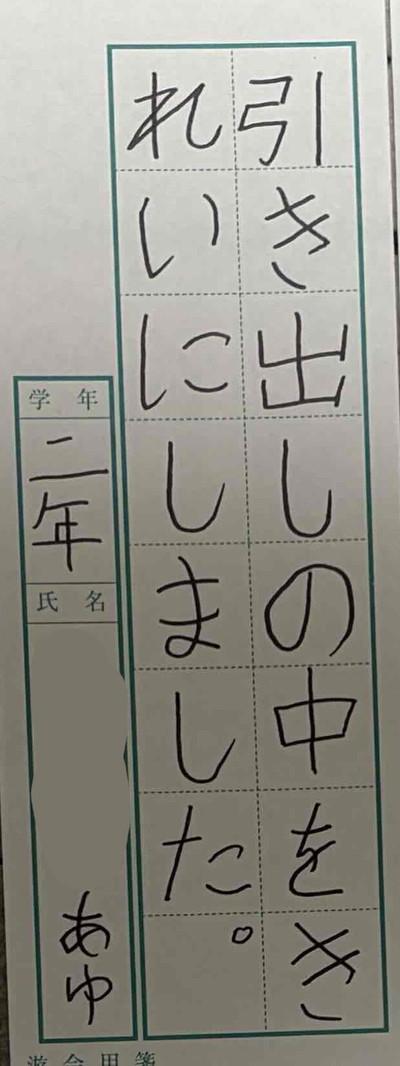 引き出しの中をき
れいにしました。
学年
二年
氏名
あゆ